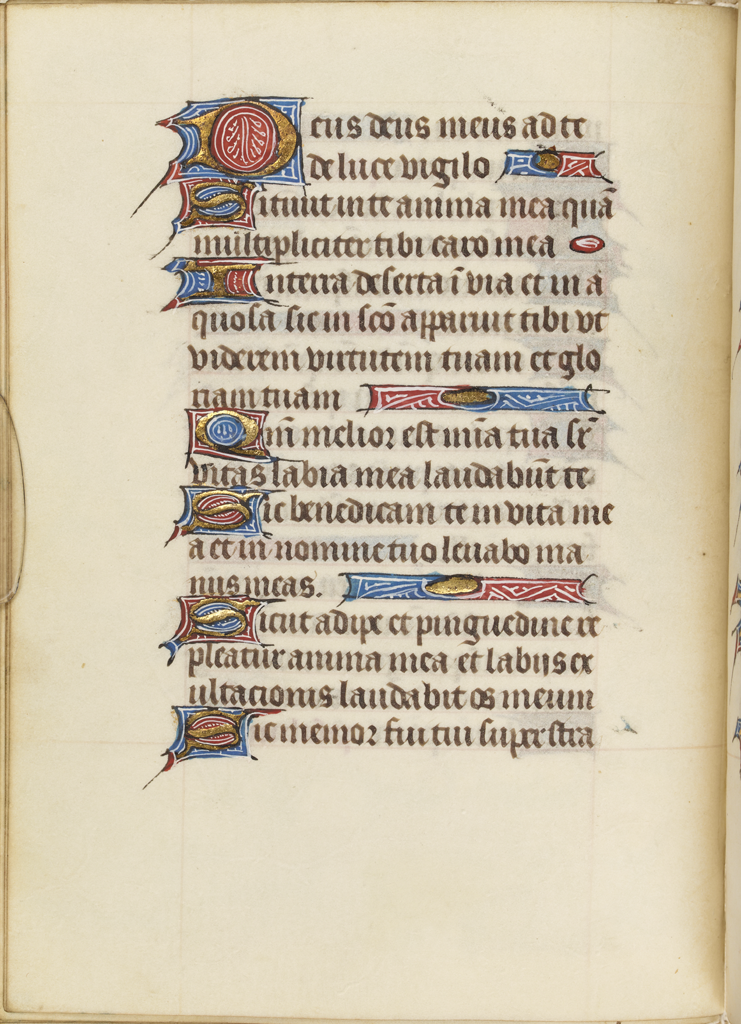 Deus deus meus ad te
de luce vigilo
Sitiuit in te anima mea quā
multipliciter tibi caro mea
In terra deserta ī via et in a
quosa sic in scō apparuit tibi vt
viderem virtutem tuam et glo
riam tuam
Qm̄ melior est mīa tua sr̄
vitas labia mea laudabūt te
Sic benedicam te in vita me
a et in nomine tuo leuabo ma
nus meas.
Sicut adipe et pinguedine re
pleatur anima mea et labijs ex
ultacionis laudabit os meum
Sic memor fui tui super stra